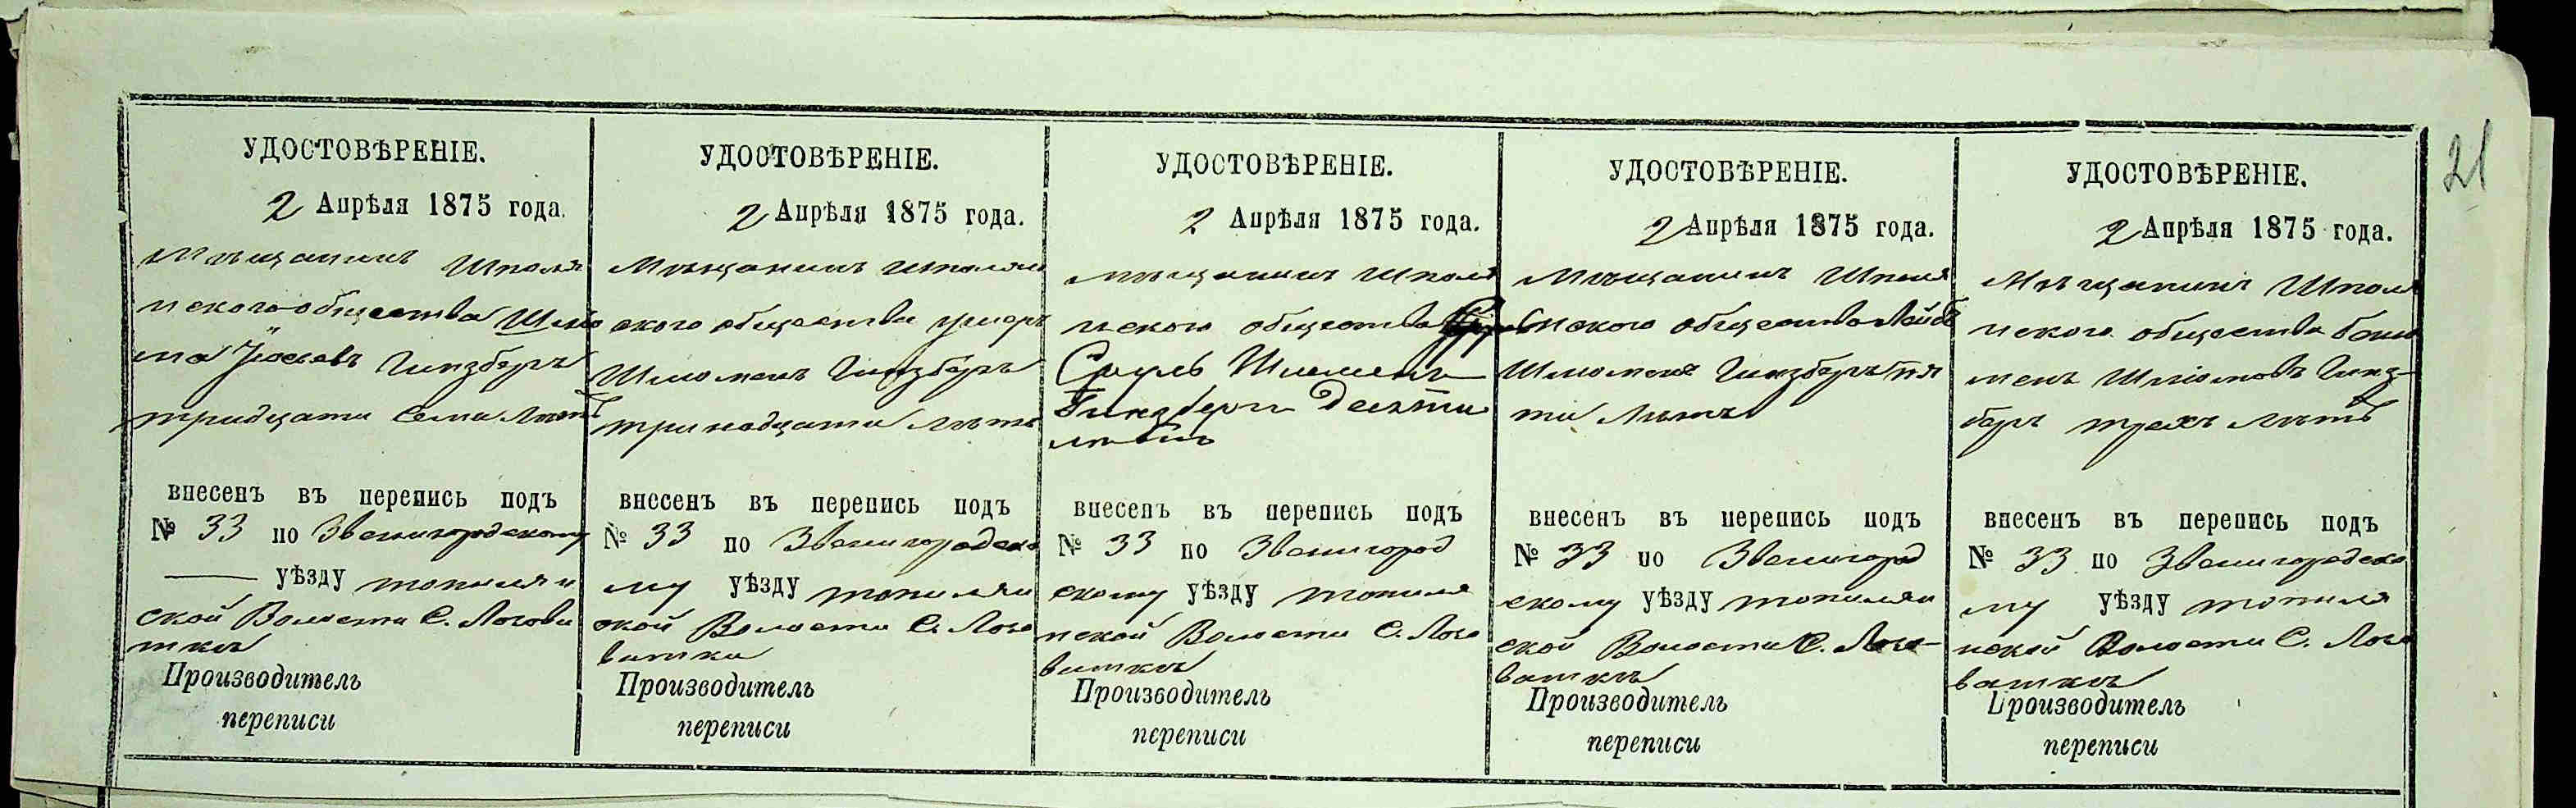 21
УДОСТОВѢРЕНІЕ.
2 Апрѣля 1875 года.
Мѣщанинъ Шполя
нского общества Шлио
ма Іосевъ Гинзберъ
тридцати Семи Лѣтъ
внесенъ въ перепись подъ
№ 33 по Звенигородскому
уѣзду топилян
ской Волости С. Логови
ткъ
Производитель
переписи
УДОСТОВѢРЕНІЕ.
2 Апрѣля 1875 года.
Мѣщанинъ Шполян
ского общества
Шлиоменъ Гинзберъ
тринадцати лѣтъ
внесенъ въ перепись подъ
№ 33 по Звенигородско
му уѣзду топилян
ской Волости С. Лого
ватки
Производитель
переписи
УДОСТОВѢРЕНІЕ.
2 Апрѣля 1875 года.
мѣщанинъ Шполя
нского общества
Сруль Шлиоменъ
Гинзберг Десяти
лѣтъ
внесенъ въ перепись подъ
№ 33 по Звенигород
скому уѣзду топиля
нской Волости С. Лого
ваткъ
Производитель
переписи
УДОСТОВѢРЕНІЕ.
2 Апрѣля 1875 года.
Мѣщанинъ Шполя
нского общества Лейбъ
Шлиоменъ Гинзберъ пя
ти Лѣтъ
внесенъ въ перепись подъ
№ 33 по Звенигород
скому уѣзду топилян
ской Волости С. Лого-
ваткъ
Производитель
переписи
УДОСТОВѢРЕНІЕ.
2 Апрѣля 1875 года.
Мѣщанинъ Шполя
нского общества
Шлиомовъ Гинз-
беръ трехъ лѣтъ
внесенъ въ перепись подъ
№ 33 по Звенигородско
му уѣзду топиля
нской Волости С. Лого
ваткъ
Производитель
переписи